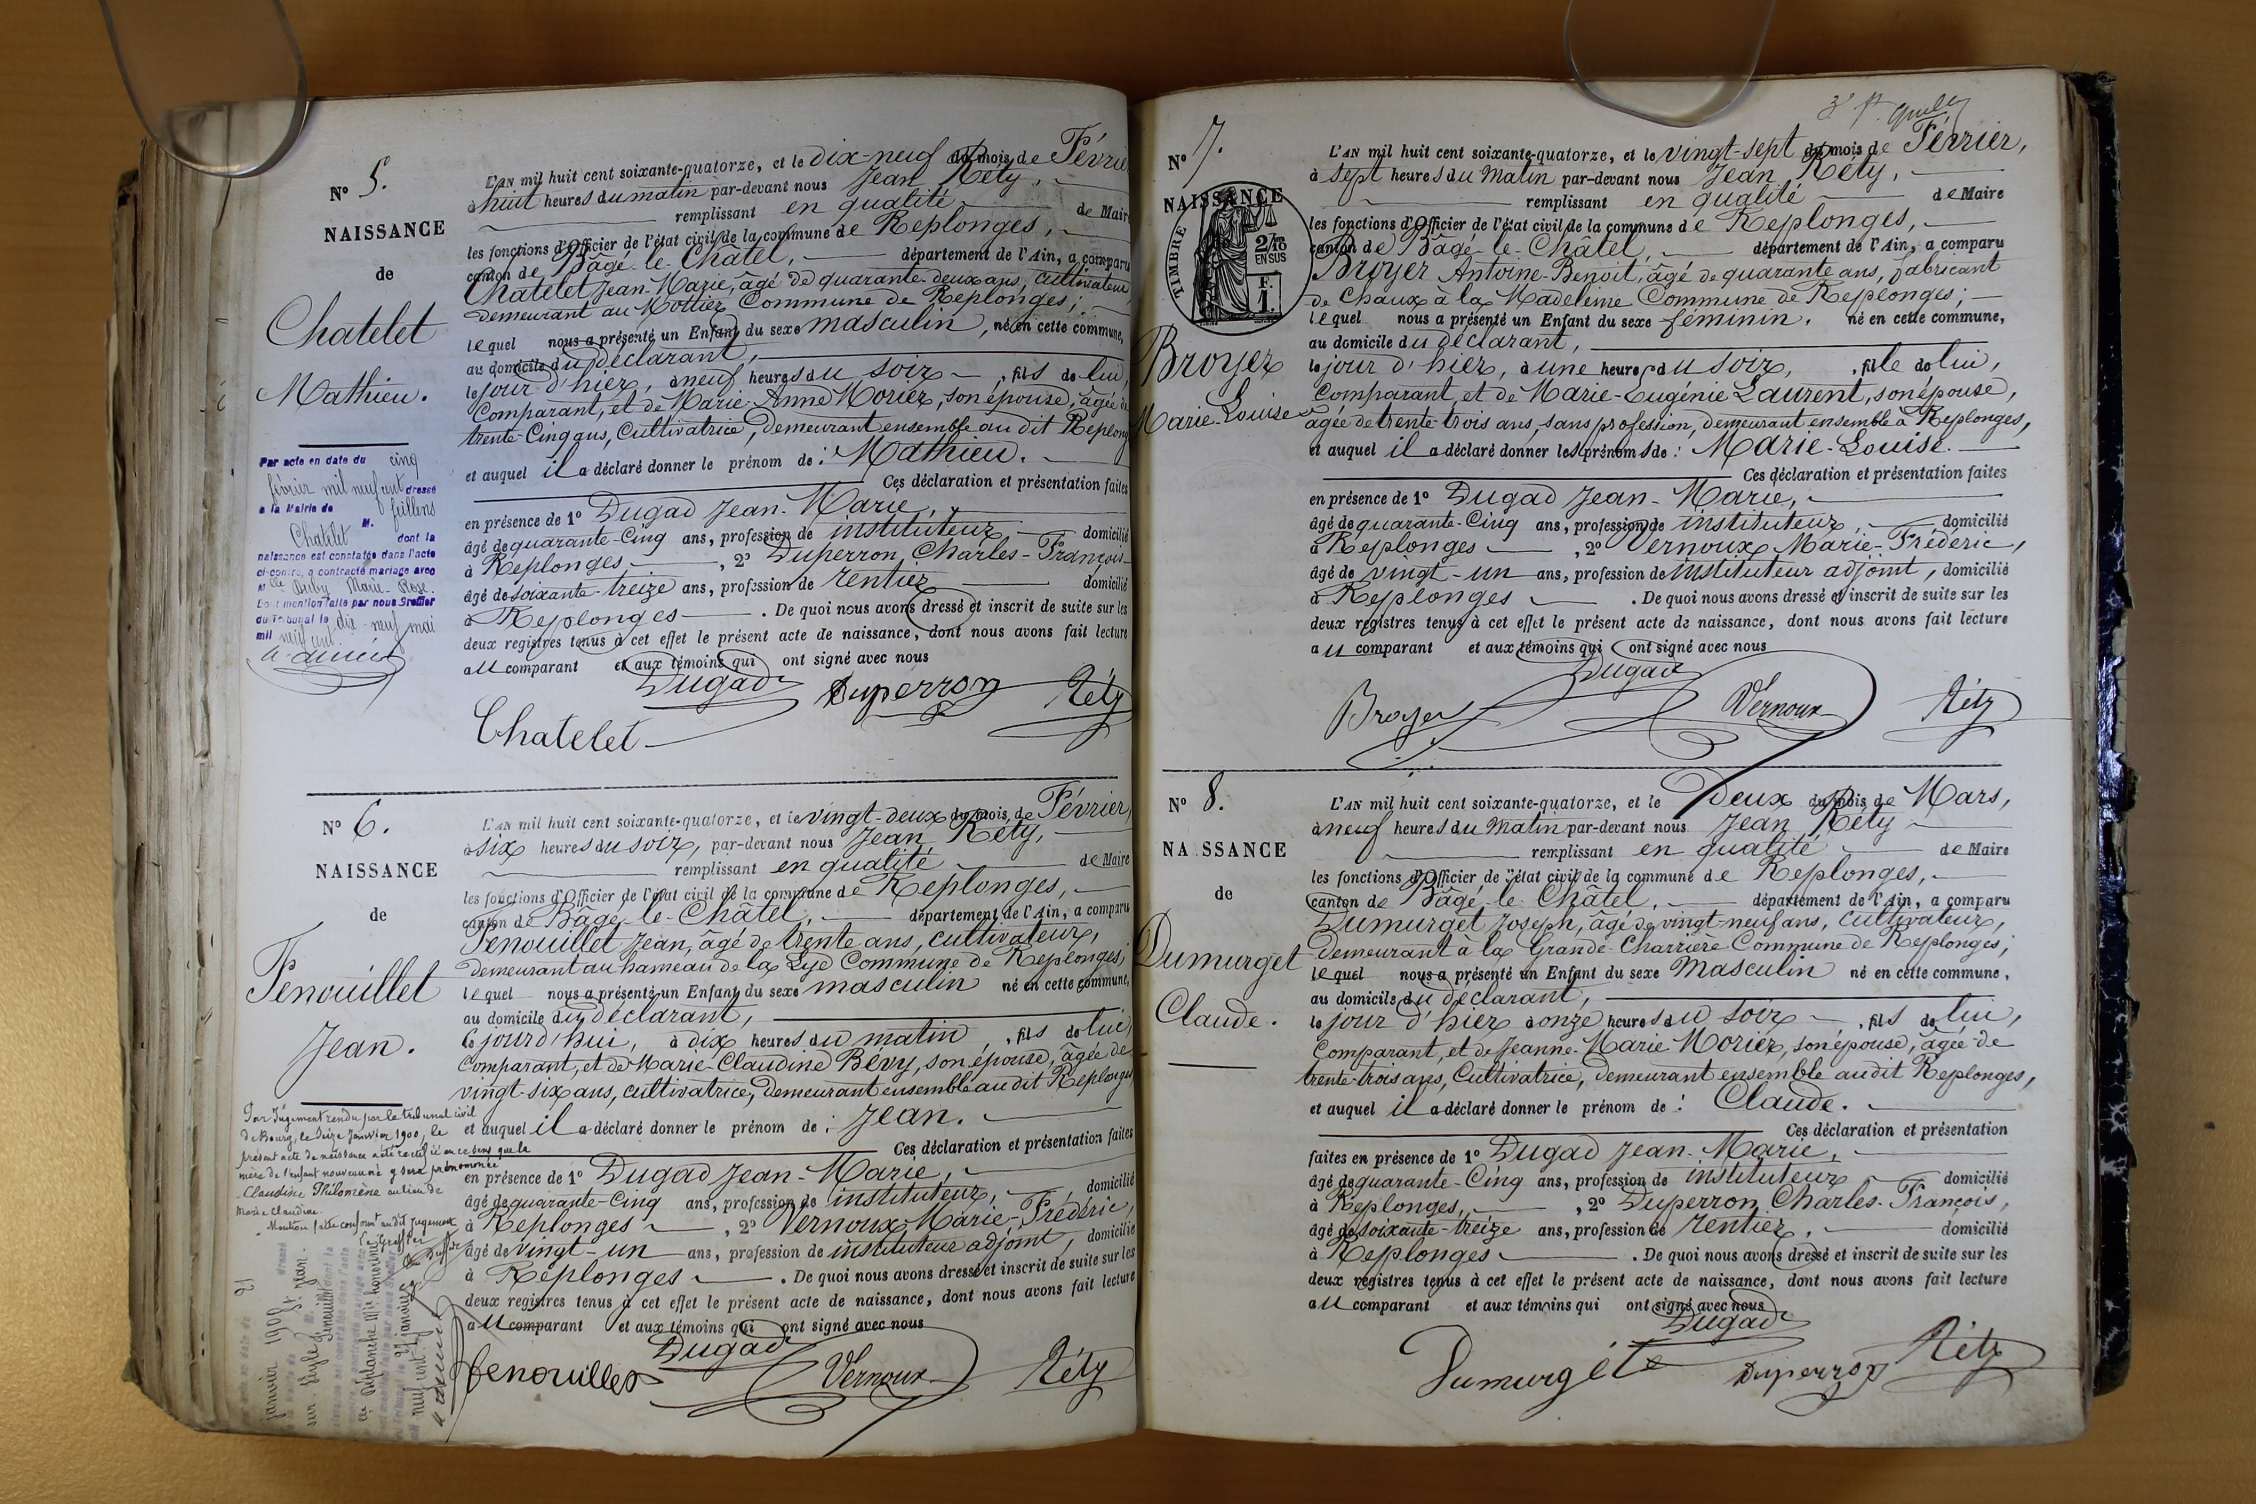 N° 5.
NAISSANCE
de
Chatelet
Mathieu.
Par acte en date du cinq
février mil neuf cent dressé
a la Mairie de feillens
M.
Chatelet dont la
naissance est constatée dans l'acte
ci-contre, a contracté mariage avec
Mlle Marie-Rose
Dont mention faite par nous Greffier
du Tribunal le dix-neuf mai
mil neuf cent
L'AN mil huit cent soixante-quatorze, et le dix-neuf du mois de Février
à huit heures du matin par-devant nous Jean Réty,
remplissant en qualité de Maire
les fonctions d'Officier de l'état civil de la commune de Replonges,
canton de Bâgé-le-Châtel, département de l'Ain, a comparu
Chatelet Jean-Marie, âgé de quarante-deux ans, cultivateur,
demeurant au Mottier Commune de Replonges;
lequel nous a présenté un Enfant du sexe masculin, né en cette commune,
au domicile du déclarant,
le jour d'hier, à neuf heures du soir, fils de lui,
Comparant, et de Marie-Anne Morier, son épouse, âgée de
trente-cinq ans, Cultivatrice, demeurant ensemble au dit Replong
et auquel il a déclaré donner le prénom de : Mathieu.
Ces déclaration et présentation faites
en présence de 1° Dugad Jean-Marie,
âgé de quarante-cinq ans, profession de instituteur domicilié
à Replonges, 2° Duperron, Charles-François
âgé de soixante-treize ans, profession de rentier domicilié
à Replonges. De quoi nous avons dressé et inscrit de suite sur les
deux registres tenus à cet effet le présent acte de naissance, dont nous avons fait lecture
au comparant et aux témoins qui ont signé avec nous
Dugad Duperron Réty
Chatelet
N° 6.
NAISSANCE
de
Fenouillet
Jean.
Par Jugement rendu par le tribunal civil
de Bourg, le seize Janvier 1900, le
présent acte de naissance a été rectifié en ce sens que la
mère de l'enfant nouveau né y sera prénommée
Claudine Philomène au lieu de
Marie Claudine.
Mention faite conformt audit jugement
Le Greffier
janvier 1901
sur St. Jean.
Fenouillet
Deplanche Mie honorine
21 janvier
neuf cent
L'AN mil huit cent soixante-quatorze, et le vingt-deux du mois de Février,
à six heures du soir, par-devant nous Jean Réty,
remplissant en qualité de Maire
les fonctions d'Officier de l'état civil de la commune de Replonges,
canton de Bâgé-le-Châtel, département de l'Ain, a comparu
Fenouillet Jean, âgé de trente ans, cultivateur,
demeurant au hameau de la Lye Commune de Replonges;
lequel nous a présenté un Enfant du sexe masculin né en cette commune,
au domicile du déclarant,
le jourd'hui, à dix heures du matin, fils de lui,
Comparant, et de Marie-Claudine Bévy, son épouse, âgée de
vingt-six ans, cultivatrice, demeurant ensemble au dit Replonges
et auquel il a déclaré donner le prénom de : Jean.
Ces déclaration et présentation faites
en présence de 1° Dugad Jean-Marie,
âgé de quarante-cinq ans, profession de instituteur, domicilié
à Replonges, 2° Vernoux Marie-Frédéric,
âgé de vingt-un ans, profession de instituteur adjoint, domicilié
à Replonges. De quoi nous avons dressé et inscrit de suite sur les
deux registres tenus à cet effet le présent acte de naissance, dont nous avons fait lecture
au comparant et aux témoins qui ont signé avec nous
Dugad
fenouillet Vernoux Réty
N° 7.
NAISSANCE
TIMBRE
2/10
EN SUS
F.
1.
Broyer
Marie-Louise
L'AN mil huit cent soixante-quatorze, et le vingt-sept du mois de Février,
à sept heures du Matin par-devant nous Jean Réty,
remplissant en qualité de Maire
les fonctions d'Officier de l'état civil de la commune de Replonges,
canton de Bâgé-le-Châtel, département de l'Ain, a comparu
Broyer Antoine-Benoit, âgé de quarante ans, fabricant
de Chaux à la Madeleine Commune de Replonges;
lequel nous a présenté un Enfant du sexe féminin, né en cette commune,
au domicile du déclarant,
le jour d'hier, à une heure du soir, fille de lui,
Comparant, et de Marie-Eugénie Laurent, son épouse,
âgée de trente-trois ans, sans profession, demeurant ensemble à Replonges,
et auquel il a déclaré donner les prénoms de : Marie-Louise.
Ces déclaration et présentation faites
en présence de 1° Dugad Jean-Marie,
âgé de quarante-cinq ans, profession de instituteur, domicilié
à Replonges, 2° Vernoux Marie-Fréderic,
âgé de vingt-un ans, profession de instituteur adjoint, domicilié
à Replonges. De quoi nous avons dressé et inscrit de suite sur les
deux registres tenus à cet effet le présent acte de naissance, dont nous avons fait lecture
au comparant et aux témoins qui ont signé avec nous
Dugad
Broyer Vernoux Réty
N° 8.
NAISSANCE
de
Dumurget
Claude.
L'AN mil huit cent soixante-quatorze, et le Deux du mois de Mars,
à neuf heures du Matin par-devant nous Jean Réty
remplissant en qualité de Maire
les fonctions d'Officier de l'état civil de la commune de Replonges,
canton de Bâgé-le-Châtel, département de l'Ain, a comparu
Dumurget Joseph, âgé de vingt-neuf ans, cultivateur,
demeurant à la Grande-Charrière Commune de Replonges;
lequel nous a présenté un Enfant du sexe Masculin né en cette commune,
au domicile du déclarant,
le jour d'hier à onze heures du soir, fils de lui,
Comparant, et de Jeanne-Marie Morier, son épouse, âgée de
trente-trois ans, Cultivatrice, demeurant ensemble au dit Replonges,
et auquel il a déclaré donner le prénom de : Claude.
Ces déclaration et présentation
faites en présence de 1° Dugad Jean-Marie,
âgé de quarante-Cinq ans, profession de instituteur domicilié
à Replonges, 2° Duperron Charles-François,
âgé de soixante-treize ans, profession de rentier, domicilié
à Replonges. De quoi nous avons dressé et inscrit de suite sur les
deux registres tenus à cet effet le présent acte de naissance, dont nous avons fait lecture
au comparant et aux témoins qui ont signé avec nous
Dugad
Dumurget Duperron Réty